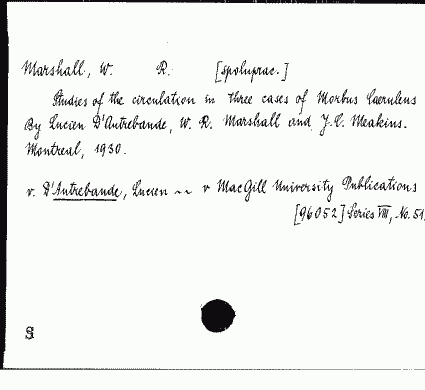 Marshall, W. R. [spoluprac.]
Studies of the circulation in three cases of Morbus Caerulens
By Lucien D'Autrebande, W. R. Marshall and J. C. Meakins.
Montreal, 1930.
v. D'Autrebande, Lucien ~~ v MacGill University Publications
[96052] Series VIII, No. 51.
S